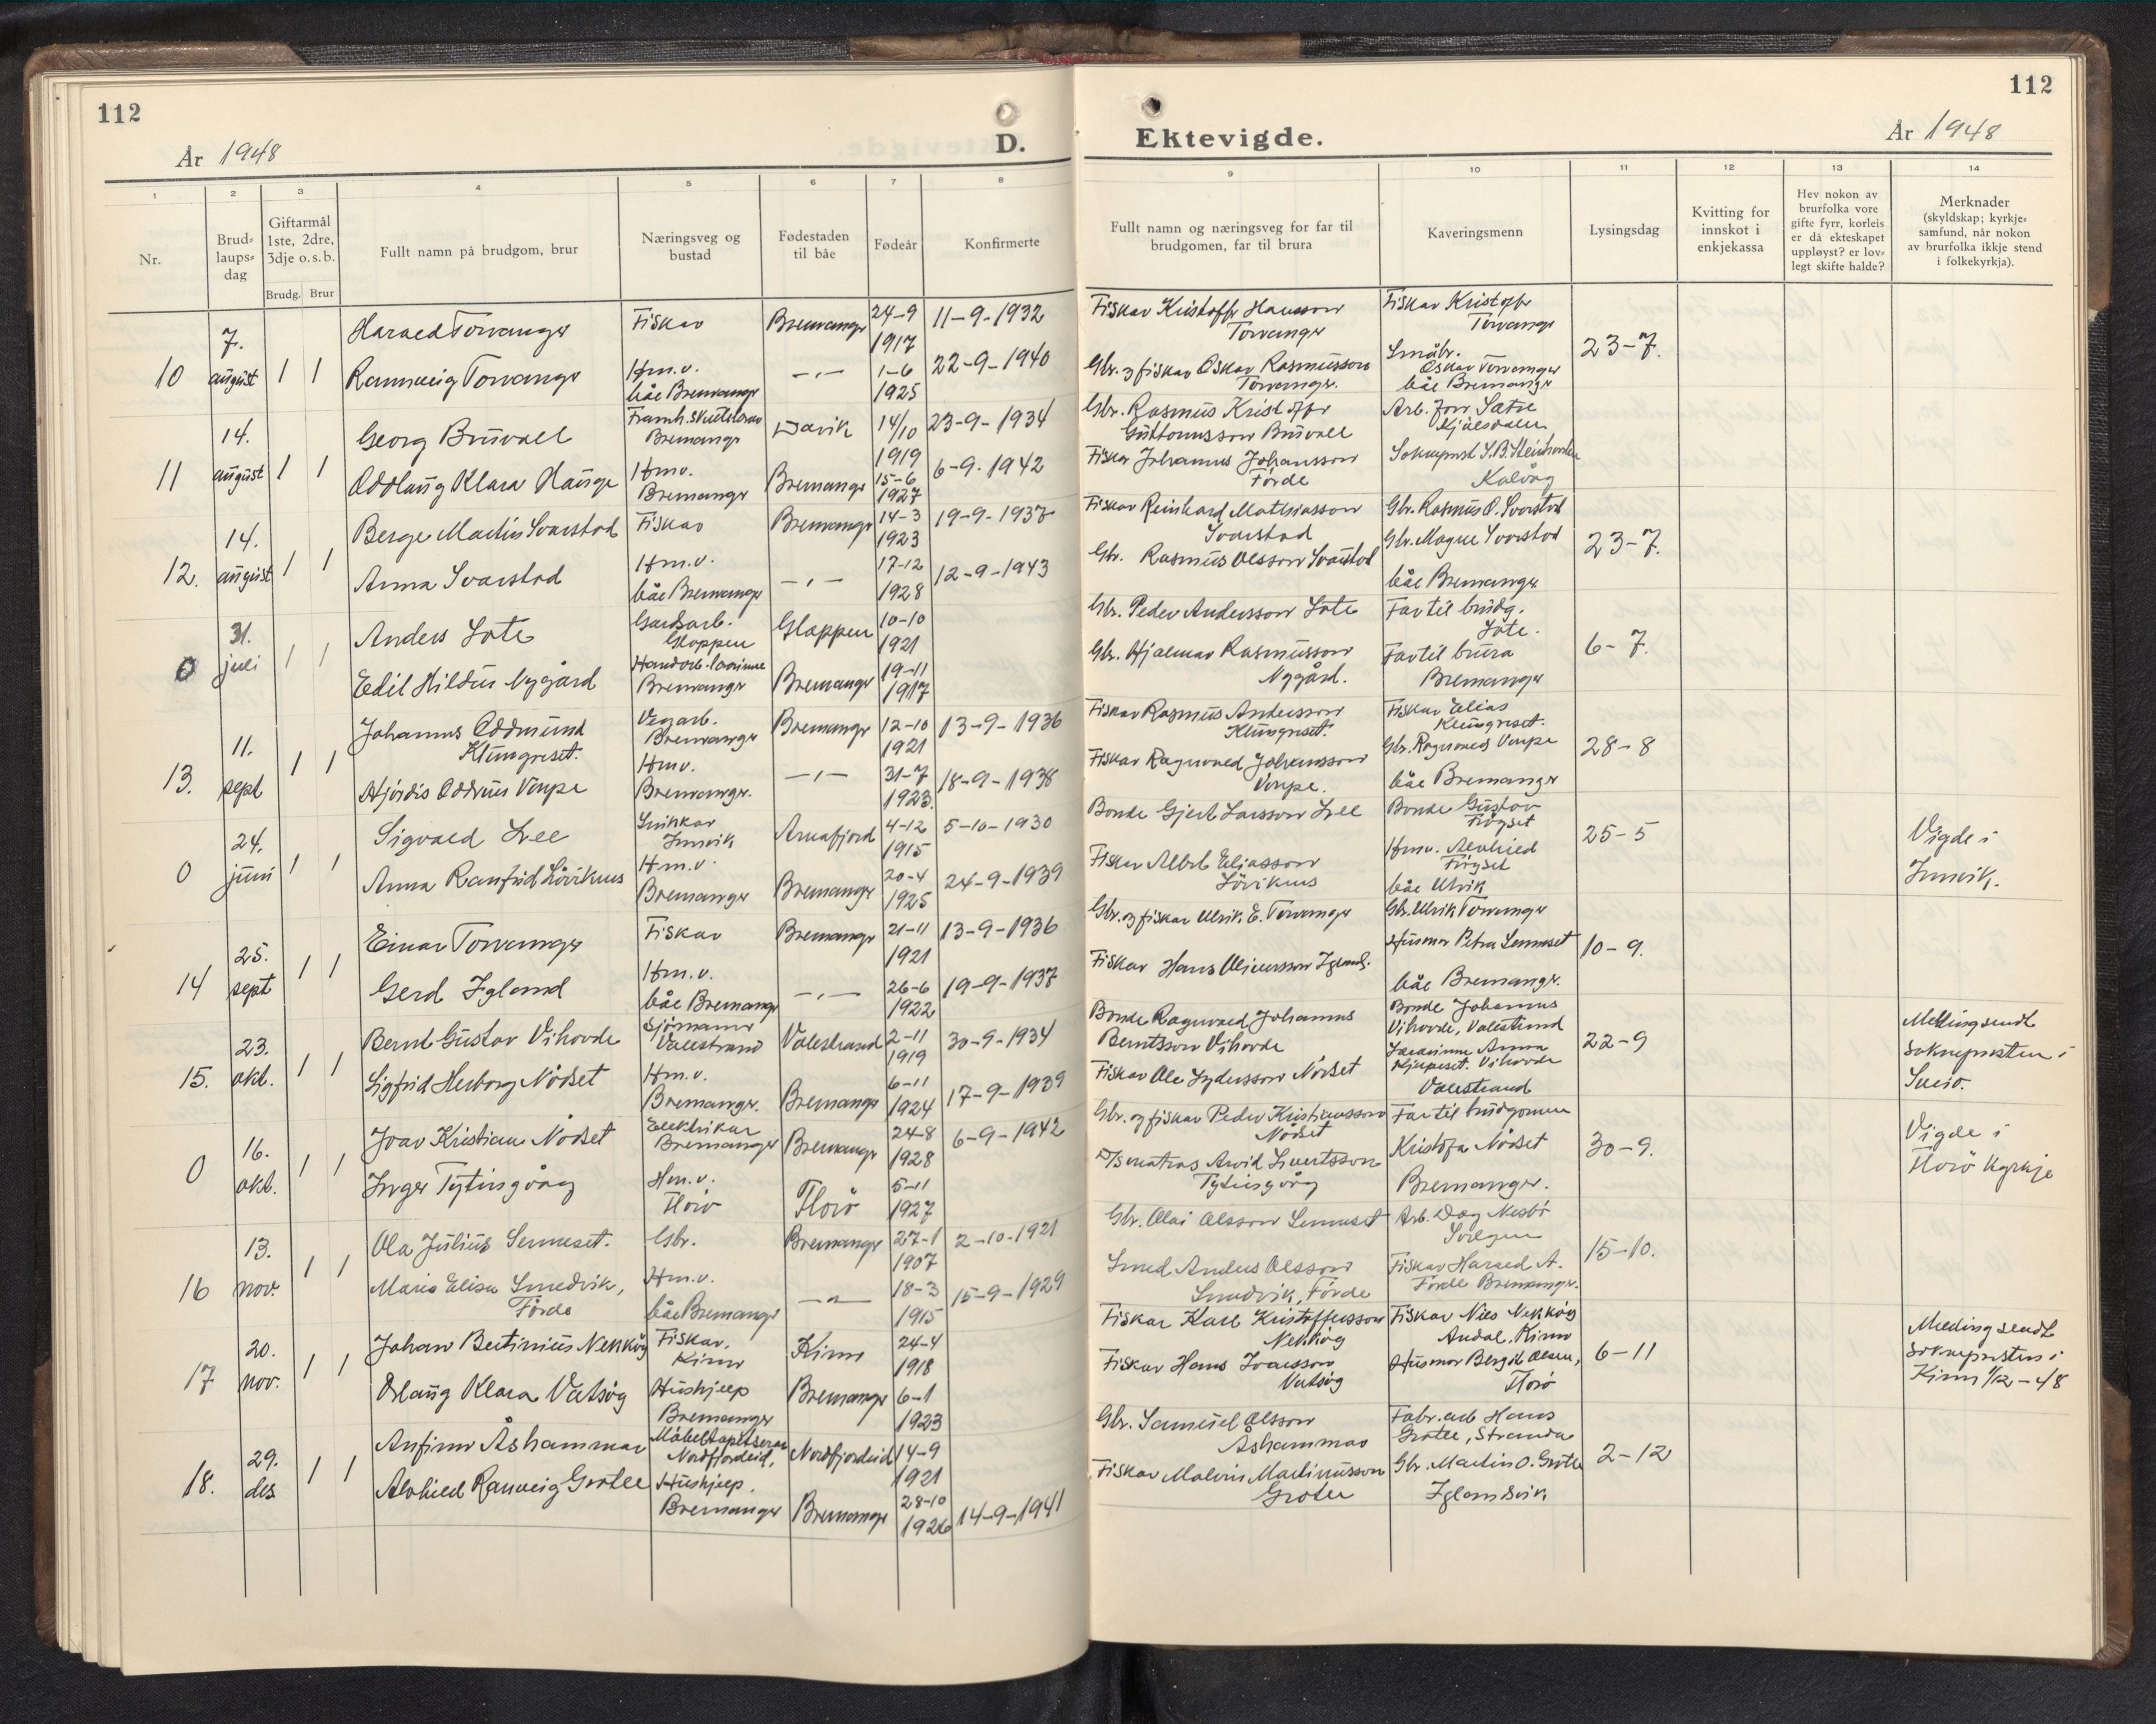 112
År 1948
D.
Nr.
Brudlaupsdag
Giftarmål 1ste, 2dre, 3dje o.s.b.
Brudg. Brur
Fullt namn på brudgom, brur
Næringsveg og bustad
Fødestaden til båe
Fødeår
Konfirmerte
1 2 3 4 5 6 7 8
10 7. august 1 1
Harald Torvanger Fiskar Bremanger 24-9 1917 11-9-1932
Rannveig Torvanger Hm.v. båe Bremanger —"— 1-6 1925 22-9-1940
11 14. august 1 1
Georg Buvall Bremanger Davik 14/10 1919 23-9-1934
Oddlaug Klara Hauge Hmv. Bremanger Bremanger 15-6 1927 6-9-1942
12. 14. august 1 1
Berge Martin Svarstad Fiskar Bremanger 14-3 1923 19-9-1937
Anna Svarstad Hm.v. båe Bremanger —"— 17-12 1928 12-9-1943
0 31. juli 1 1
Anders Lote Gardsarb. Gloppen Gloppen 10-10 1921
Edil Hildur Nygård Bremanger Bremanger 19-11 1917
13. 11. sept 1 1
Johannes Oddmund Klungreset. Vegarb. Bremanger Bremanger 12-10 1921 13-9-1936
Hjördis Oddrun Vorpe Hmv. Bremanger. —"— 31-7 1923. 18-9-1938
0 24. juni 1 1
Sigvald Lee Snikkar Innvik Arnafjord 4-12 1915 5-10-1930
Anna Ranfrid Löviknes Hm.v. Bremanger Bremanger 20-4 1925 24-9-1939
14 25. sept 1 1
Einar Torvanger Fiskar Bremanger 21-11 1921 13-9-1936
Gerd Igland Hm.v. båe Bremanger —"— 26-6 1922 19-9-1937
15. 23. okt. 1 1
Bernt Gustav Vihovde Sjömann Valestrand Valestrand 2-11 1919 30-9-1934
Sigfrid Herborg Nödset Hm.v. Bremanger. Bremanger 6-11 1924 17-9-1939
0 16. okt. 1 1
Joar Kristian Nödset Elektrikar Bremanger Bremanger 24-8 1928 6-9-1942
Inger Tytingvåg Hm.v. Florö Florö 5-11 1927
16 13. nov. 1 1
Ola Julius Senneset. Gbr. Bremanger 27-1 1907 2-10-1921
Marie Elise Smedvik, Förde Hm.v. båe Bremanger —"— 18-3 1915 15-9-1929
17 20. nov. 1 1
Johan Bertinius Nekköy Fiskar, Kinn Kinn 24-4 1918
Klara Vatsög Hushjelp Bremanger Bremanger 6-1 1923
18. 29. des 1 1
Anfinn Åshammar Möbeltapetserar Nordfjordeid, Nordfjordeid 14-9 1921
Alvhild Ranveig Grotle Hushjelp. Bremanger Bremanger 28-10 1926 14-9-1941
112
Ektevigde.
År 1948
9 10 11 12 13 14
Fullt namn og næringsveg for far til brudgomen, far til brura
Kaveringsmenn
Lysingsdag
Kvitting for innskot i enkjekassa
Hev nokon av brurfolka vore gifte fyrr, korleis er då ekteskapet uppløyst? er lovlegt skifte halde?
Merknader (skyldskap; kyrkjesamfund, når nokon av brurfolka ikkje stend i folkekyrkja).
Fiskar Kristoffer Hansson Torvanger Fiskar Kristoffer Torvanger
Gbr. og fiskar Oskar Rasmusson Torvanger. Småbr. Oskar Torvanger båe Bremanger 23-7.
Gbr. Rasmus Kristoffer Guttormsson Buvall Arb. Sætre
Fiskar Johannes Johansson Förde Sokneprest Kalvåg
Fiskar Reinhard Mathiasson Svarstad Gbr. Rasmus O. Svarstad
Gbr. Rasmus Olsson Svarstad Gbr. Magne Svarstad båe Bremanger 23-7.
Gbr. Peder Andersson Lote Far til brudg. Lote.
Gbr. Hjalmar Rasmusson Nygård. Far til brura Bremanger 6-7.
Fiskar Rasmus Andersson Klungreset. Fiskar Elias Klungreset.
Fiskar Ragnvald Johansson Vorpe. Gbr. Ragnvald Vorpe båe Bremanger 28-8
Bonde Gjert Larsson Lee Bonde Gustav
Fiskar Albert Eliasson Löviknes Hmv. Alvhild båe Ulvik 25-5
Vigde i Innvik.
Gbr. og fiskar Ulrik E. Torvanger Gbr. Ulrik Torvanger
Fiskar Hans Oliversson Igland. Husmor Petra Senneset båe Bremanger. 10-9.
Bonde Ragnvald Johannes Berntsson Vihovde Bonde Johannes Vihovde, Valestrand
Fiskar Ole Lydersson Nödset Lærarinne Anna Vihovde Valestrand 22-9
Melding sendt soknepresten i Sveio.
Gbr. og fiskar Peder Kristiansson Nödset Far til brudgomen
Arvid Sivertsson Tytingvåg Kristofa Nödset Bremanger. 30-9.
Vigde i Florö kyrkje
Gbr. Olai Olsson Senneset Arb. Dag Nesbö Svelgen
Smed Anders Olsson Smedvik, Förde Fiskar Harald A. Förde Bremanger. 15-10.
Fiskar Karl Kristoffersson Nekköy Fiskar Nils Nekköy Kinn
Fiskar Hans Ivarsson Vatsög Husmor Bergit Olsen, Florö 6-11
Melding sendt soknepresten i Kinn 1/12-48
Gbr. Samuel Olsson Åshammar Fabr.arb Hans Grotle, Stranda
Fiskar Malvin Martinusson Grotle Gbr. Martin O. Grotle Iglandsvik 2-12